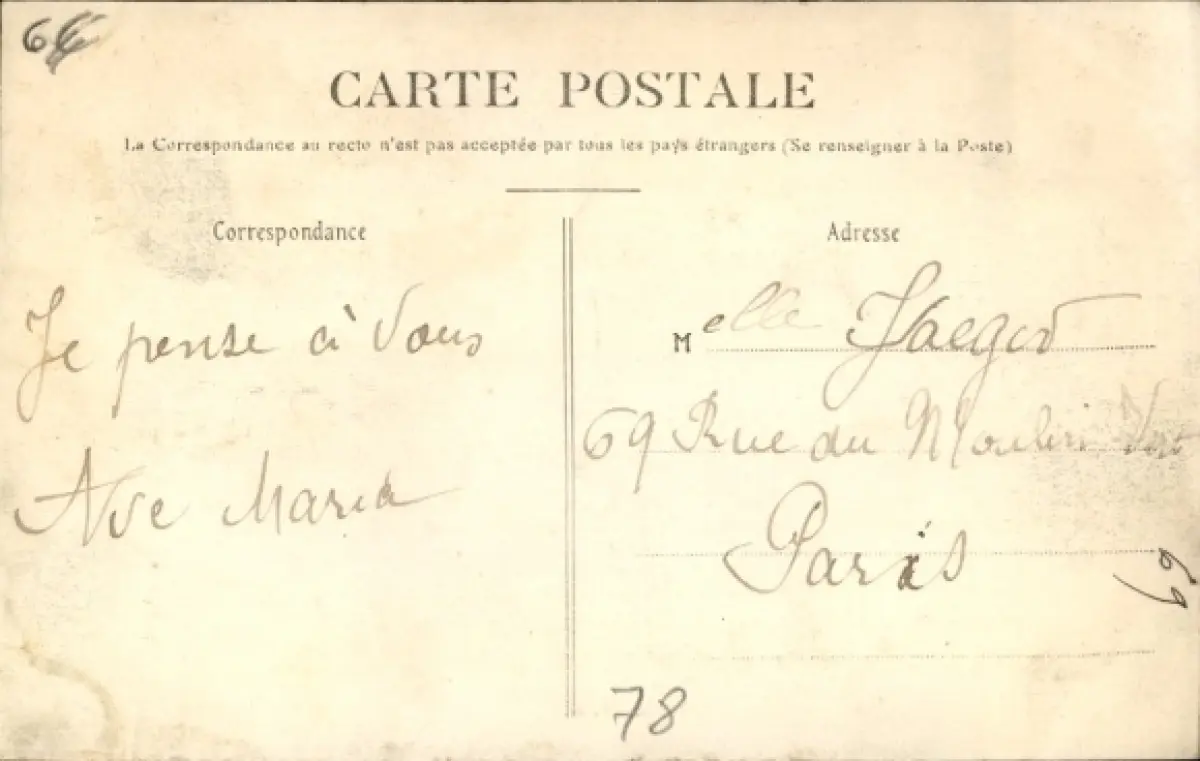 CARTE POSTALE
La Correspondance au recto n'est pas acceptée par tous les pays étrangers (Se renseigner à la Poste)
Correspondance
Je pense à Vous
Ave Maria
Adresse
Melle Jaeger
69 Rue du Moulin Vert
Paris
69
78